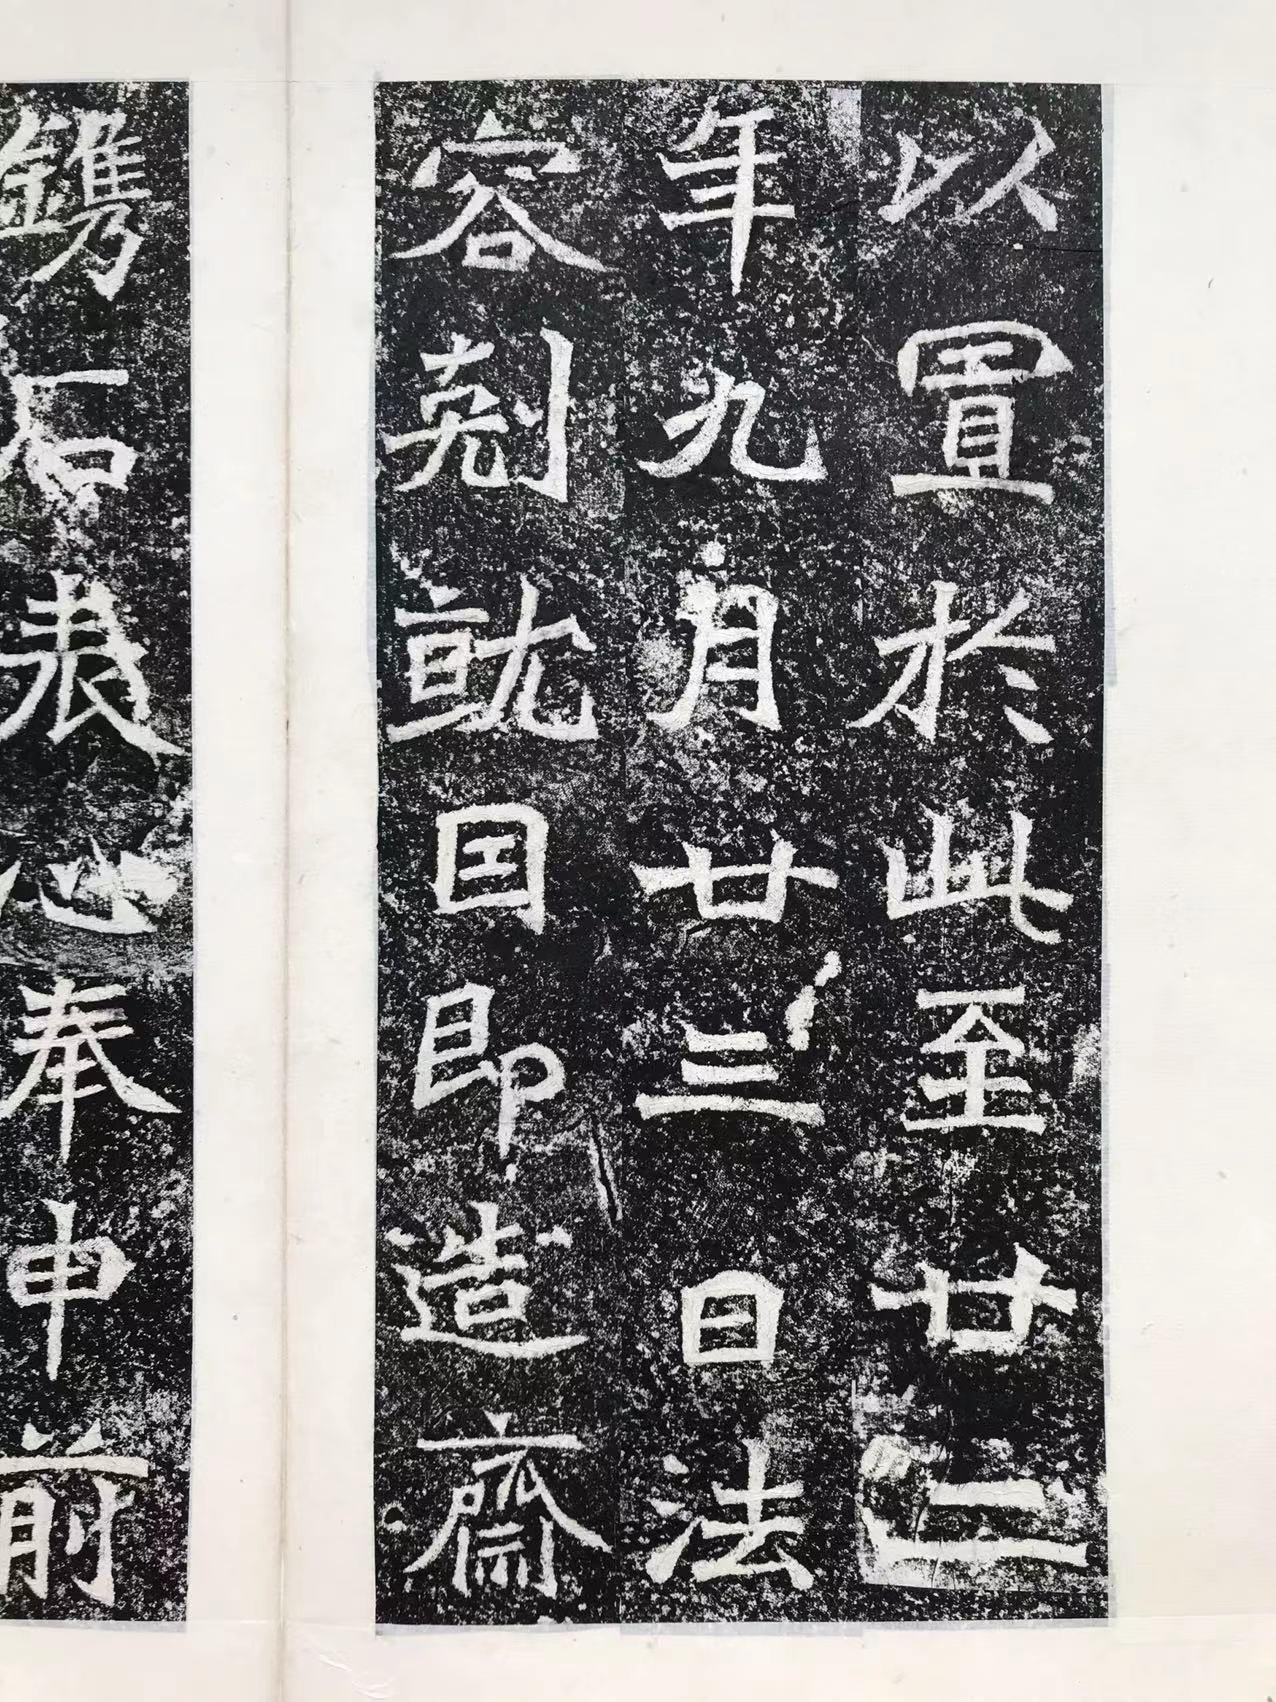 以置於此至廿二
年九月廿三日法
容剋就因即造齋
鐫石表心奉申前